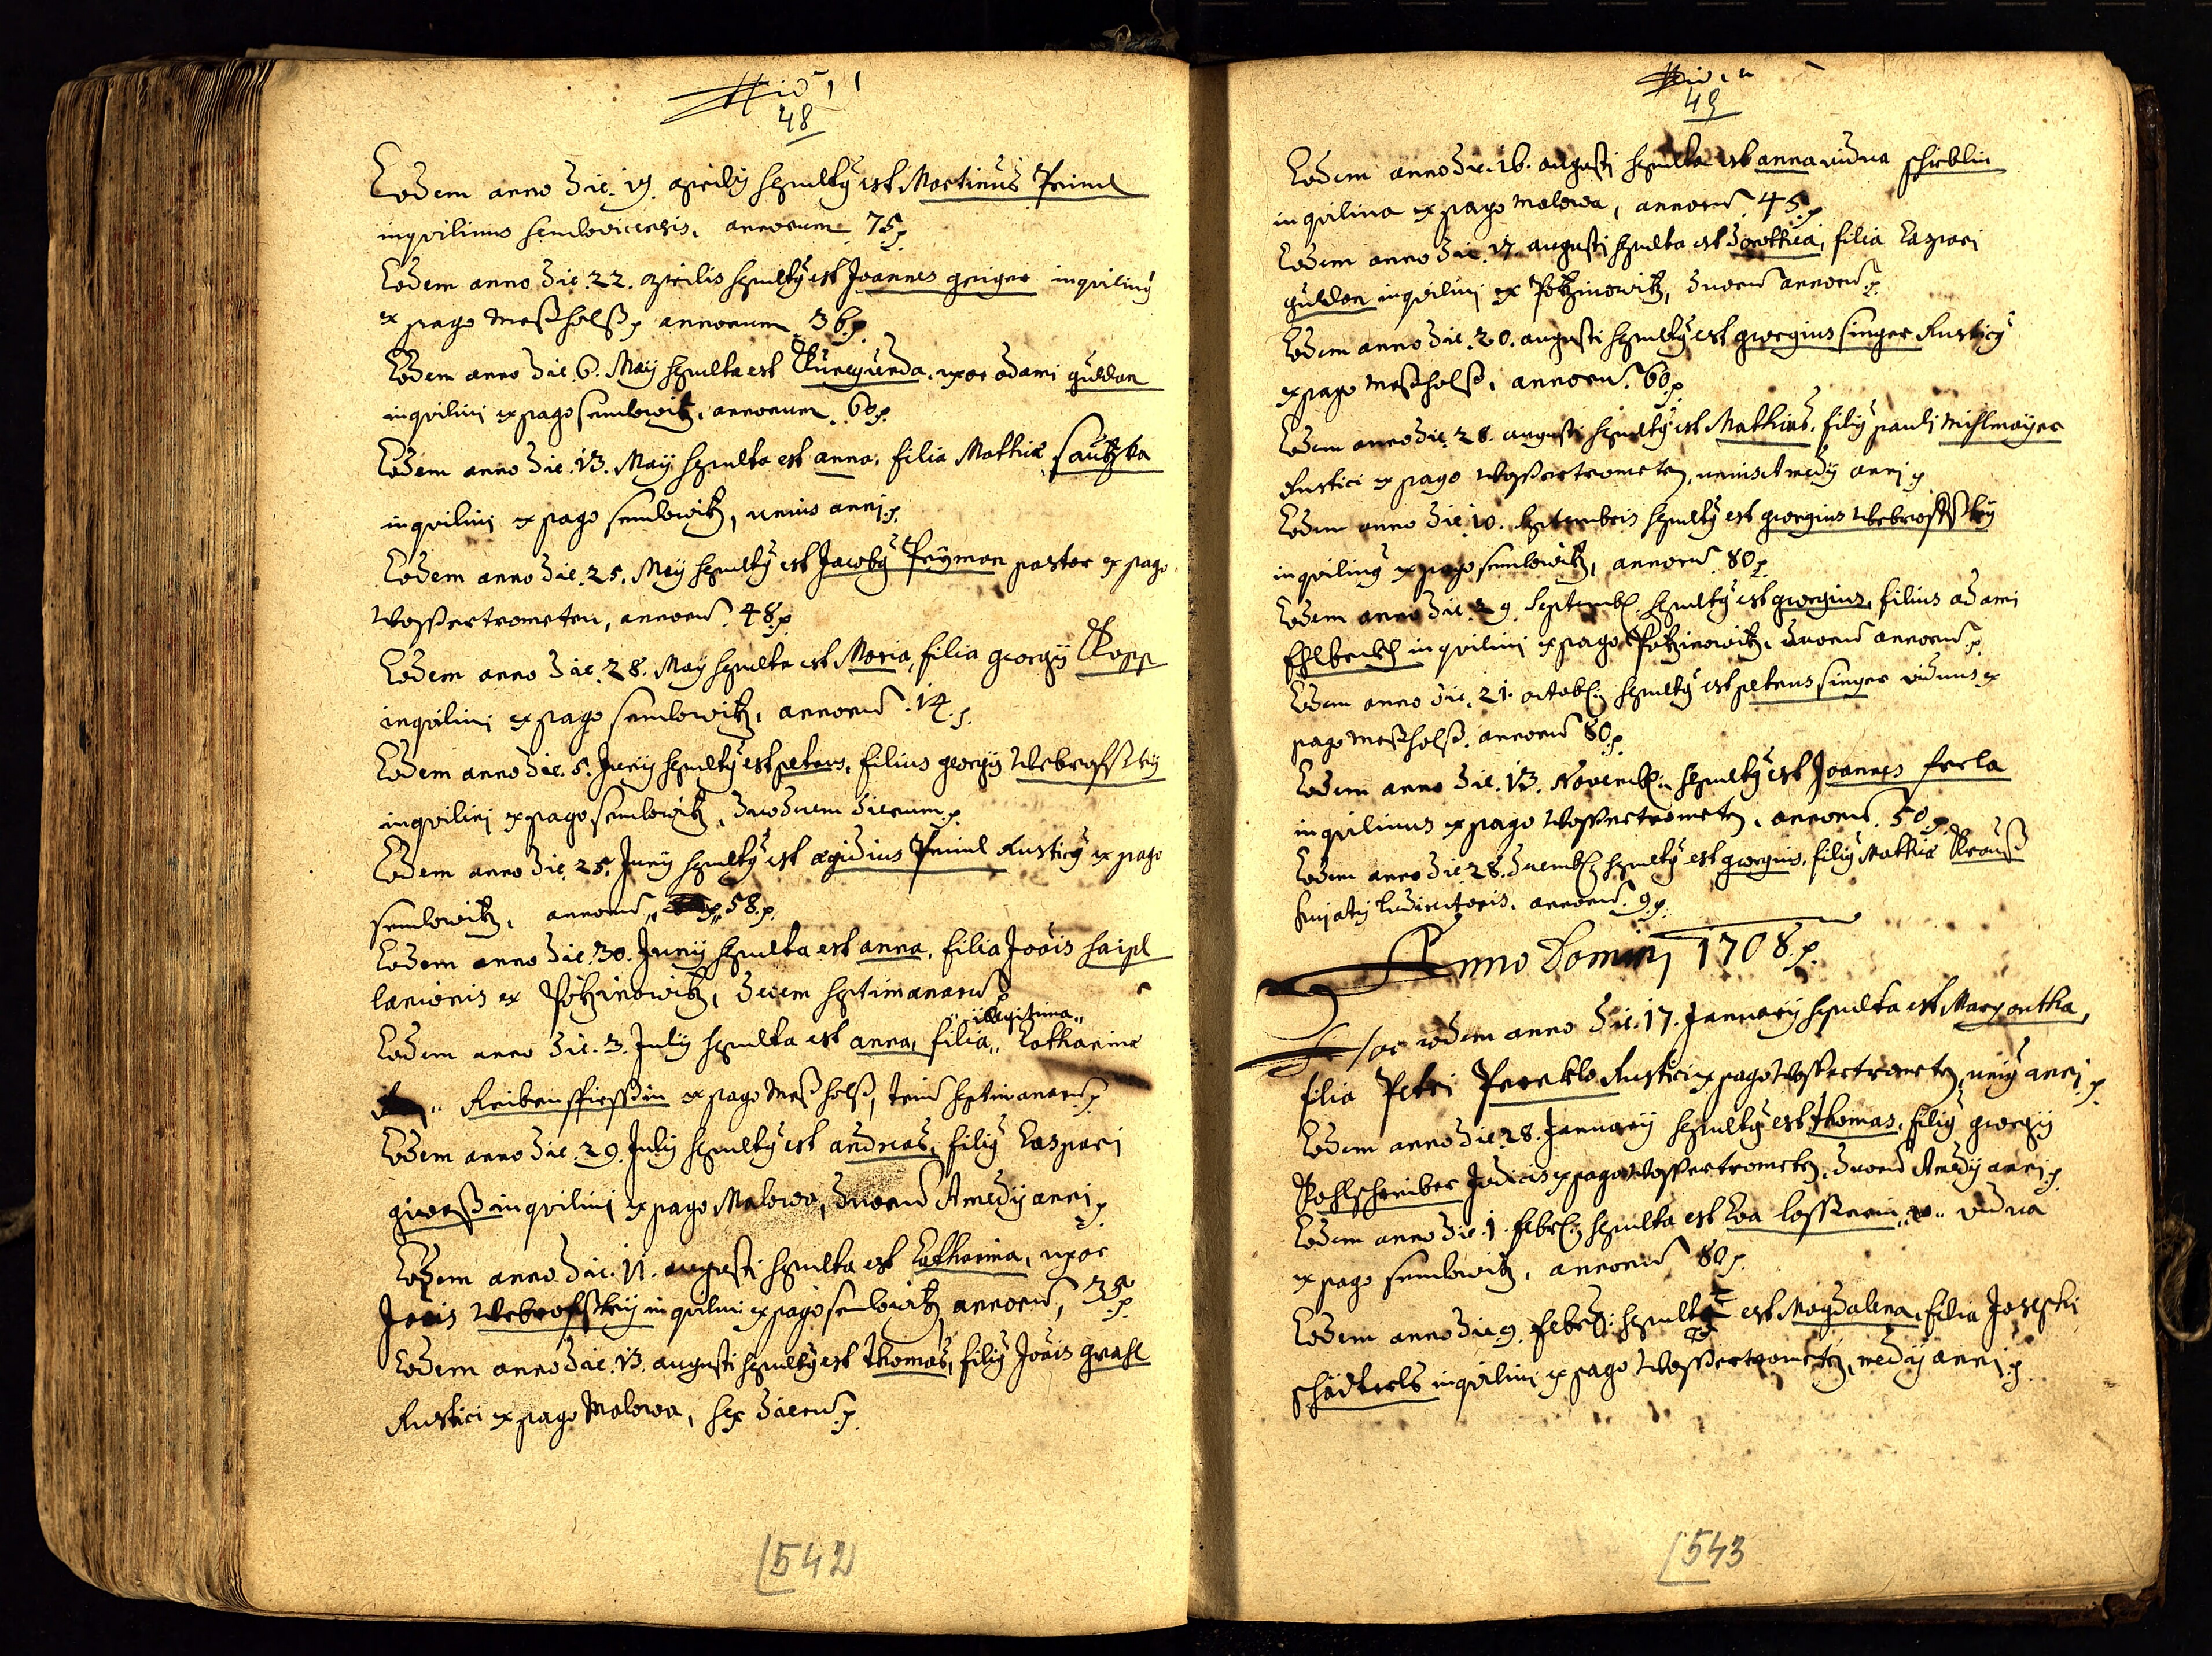 48
Eodem anno die. 19. aprilis sepultus est Martinus Priml
inquilinus semlovicensis, annorum 75 p.
Eodem anno die. 22. aprilis sepultus est Joannes geiger inquilinus
ex pago Meßholß, annorum 36 p.
Eodem anno die. 6. Maij sepulta est Kunegunda. uxor adami guldan
inquilini ex pago semlowitz, annorum. 60 p.
Eodem anno die. 13. Maij sepulta est anna, filia Mathiæ sautzka
inquilini ex pago semlowitz, unius anni p.
Eodem anno die. 25. Maij sepultus est Jacobus Prÿman pastor ex pago
Wossertrometen, annorum. 48 p.
Eodem anno die. 28. Maij sepulta est Maria, filia georgij Kopp
inquilini ex pago semlowitz, annorum. 14. p.
Eodem anno die. 5. Junij sepultus est petrus, filius georgij Webrosskÿ
inquilini ex pago semlowitz, duodecim dierum p.
Eodem anno die. 25. Junij sepultus est ægidius Priml Rusticus ex pago
semlowitz, annorum 58. p.
Eodem anno die. 30. Junij sepulta est anna, filia Joãis haipl
lanionis ex Potzinowitz, decem septimanarum p.
illegitima
Eodem anno die. 3. Julij sepulta est anna, filia Catharinæ
Reibenspiessin ex pago Meßholß, trium septimanarum p.
Eodem anno die. 29. Julij sepultus est andreas, filius Caspari
giweß inquilini ex pago Malowa, duorum & medij anni p.
Eodem anno die. 11. augusti sepulta est Catharina, uxor
Joãis Webrosskÿ inquilini ex pago semlowitz annorum, 35 p.
Eodem anno die. 13. augusti sepultus est Thomas, filius Joãis grahl
Rustici ex pago Malowa, sex dierum p.
542
49
Eodem anno die. 16. augusti sepulta est anna vidua schieblin
inquilina ex pago Malowa, annorum. 45 p.
Eodem anno die. 17. augusti sepulta est dorothea, filia Caspari
guldan inquilini ex Potzinowitz, duorum annorum p.
Eodem anno die. 20. augusti sepultus est georgius singer Rusticus
ex pago Meßholß, annorum. 60 p.
Eodem anno die. 28. augusti sepultus est Mathias, filius pauli Mihlmaÿer
Rustici ex pago Wossertrometen, unius & medij anni p.
Eodem anno die. 10. septembris sepultus est georgius Webrosskÿ
inquilinus ex pago semlowitz, annorum. 80 p.
Eodem anno die. 29. septemb: sepultus est georgius, filius adami
Ehlbeckh inquilini ex pago Potzinowitz, duorum annorum p.
Eodem anno die. 21. octob: sepultus est petrus singer viduus ex
pago Meßholß. annorum 80 p.
Eodem anno die. 13. Novemb: sepultus est Joannes ferla
inquilinus ex pago Wossertrometen, annorum. 50 p.
Eodem anno die. 28. decemb: sepultus est georgius, filius Mathiæ Krauß
hujatis ludirectoris. annorum. 9. p.
Anno Domini 1708. p.
Hoc eodem anno die. 17. Januarij sepulta est Margaretha,
filia Petri Perckla Rustici ex pago Wossertrometen, unius anni p.
Eodem anno die 28. Januarij sepultus est Thomas, filius georgij
Kohlschreiber Judicis ex pago Wossertrometen, duorum & medij anni p.
Eodem anno die. 1. febr: sepulta est Eva lossnerin vidua
ex pago semlowitz, annorum 80 p.
Eodem anno die 9. febr: sepulta est Magdalena, filia Josephi
schädterls inquilini ex pago Wossertrometen, medij anni p.
543